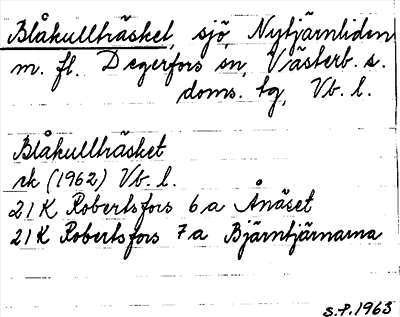 Blåkullträsket, sjö, Nytjärnliden
m. fl. Degerfors sn, Västerb. s.
doms. tg, Vb. l.
Blåkullträsket
rk (1962) Vb. l.
21K Robertsfors 6a Ånäset
21K Robertsfors 7a Bjärntjärnarna
S.P. 1963